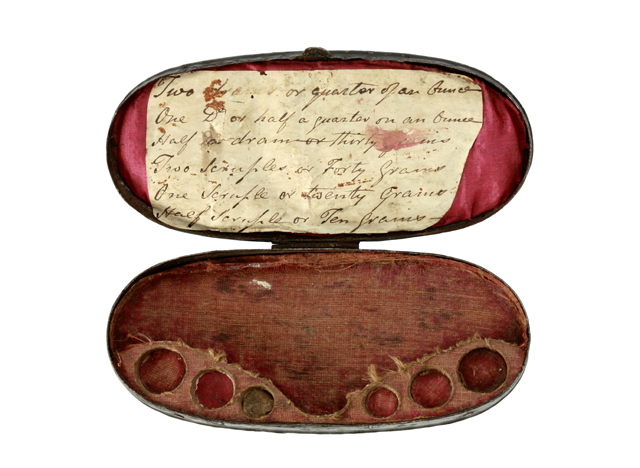 Two Drams or quarter of an Ounce
One Dm or half a quarter on an Ounce
Half a dram or thirty grains
Two Scruples or Forty Grains
One Scruple or twenty Grains
Half Scruple or Ten Grams